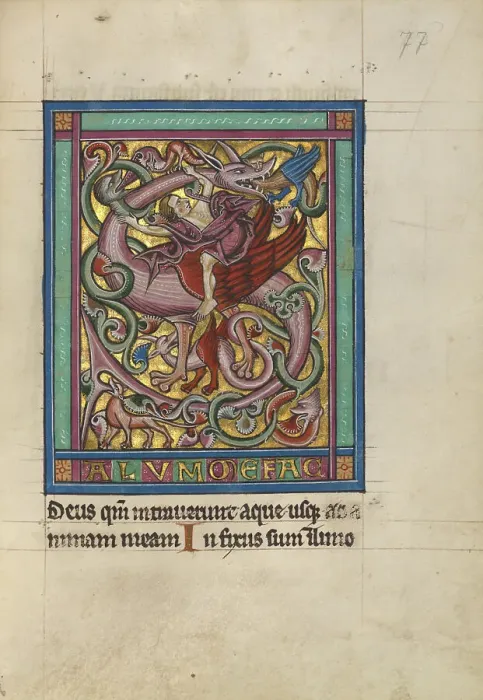 77
ALVMMEFAC
Deus qm̄ intrauerunt aque usqꝫ ad a
nimam meam In fixus sum ī limo